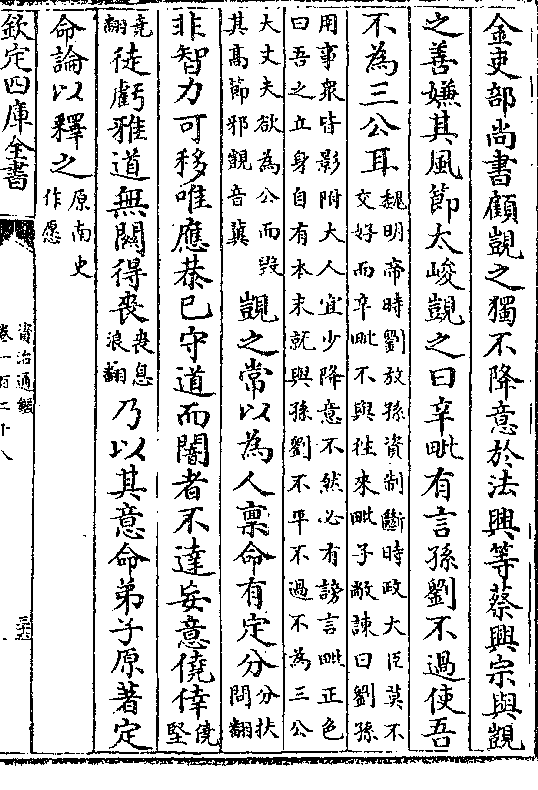 金吏部尚書顧覬之獨不降意於法興等蔡興宗與覬
之善嫌其風節太峻覬之曰辛毗有言孫劉不過使吾
不為三公耳魏明帝時劉放孫資制斷時政大臣莫不
交好而辛毗不與往來毗子敞諫曰劉孫
用事衆皆影附大人宜少降意不然必有謗言毗正色
曰吾之立身自有本末就與孫劉不平不過不為三公
大丈夫欲為公而毀
其髙節邪覬音冀覬之常以為人禀命有定分分扶
問翻
非智力可移唯應恭己守道而闇者不達妄意僥倖僥
堅
竟
翻徒虧雅道無關得喪喪息
浪翻乃以其意命弟子原著定
命論以釋之原南史
作愿
欽定四庫全書
資治通鑑
卷一百二十八